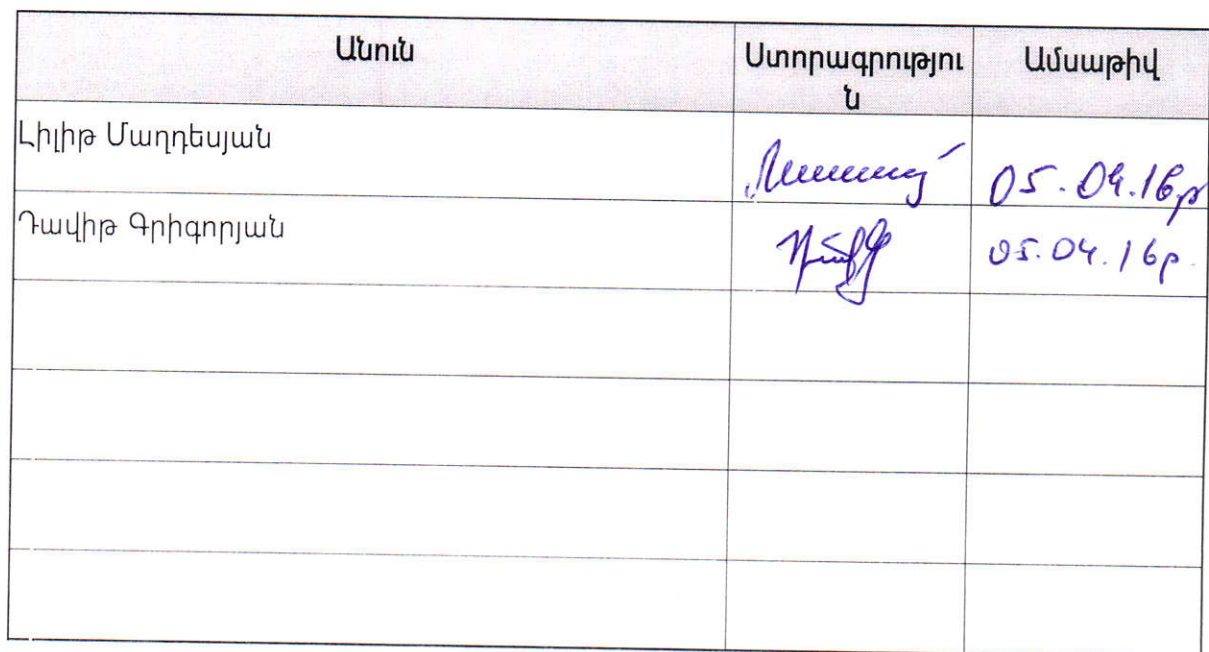 Անուն Ստորագրությու Ամսաթիվ
ն
Լիլիթ Մաղդեսյան 05.04.16թ
Դավիթ Գրիգորյան 05.04.16թ.